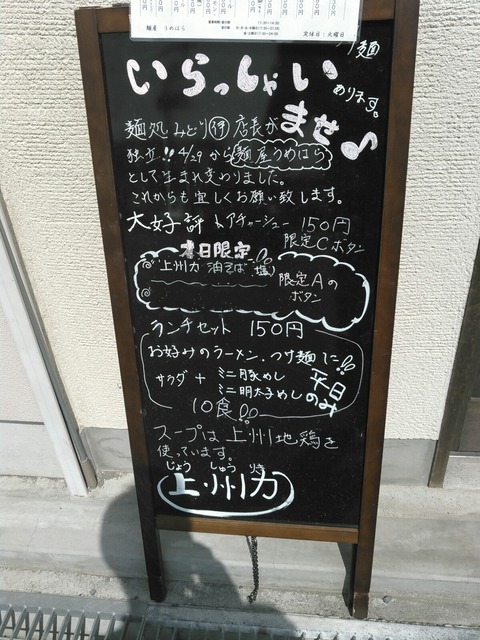 麺屋 うめはら
定休日:火曜日
麺
あります。
いらっしゃい
ませ♪
麺処 みどり 店長が
独立!! 4/29から麺屋うめはら
として生まれ変わりました。
これからも宜しくお願い致します。
大好評 レアチャーシュー 150円
限定Cボタン
本日限定!!
上州力 油そば 塩
限定Aの
ボタン
ランチセット 150円
お好みのラーメン、つけ麺に!!
サラダ + ミニ豚めし
ミニ明太子めし
平日
のみ
10食!!
スープは上州地鶏を
使っています。
じょう しゅう
上州力